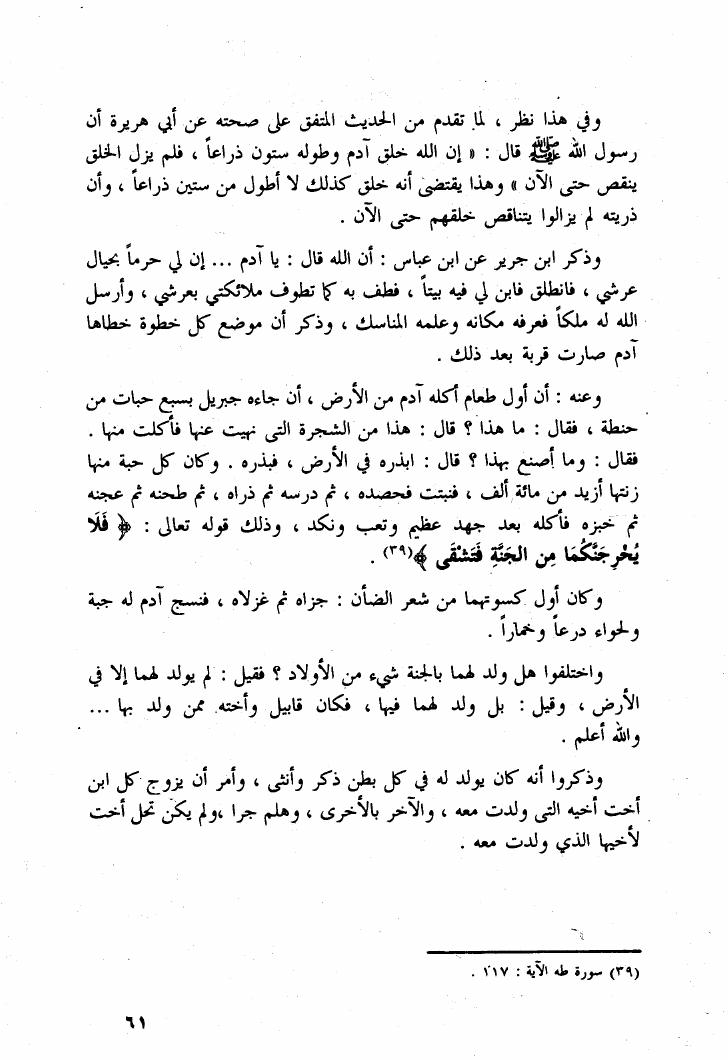 وفي هذا نظر ، لما تقدم من الحديث المتفق على صحته عن أبي هريرة أن
رسول الله ﷺ قال : « إن الله خلق آدم وطوله ستون ذراعاً ، فلم يزل الخلق
ينقص حتى الآن » وهذا يقتضى أنه خلق كذلك لا أطول من ستين ذراعاً ، وأن
ذريته لم يزالوا يتناقص خلقهم حتى الآن .
وذكر ابن جرير عن ابن عباس : أن الله قال : يا آدم ... إن لي حرماً بحيال
عرشي ، فانطلق فابن لي فيه بيتاً ، فطف به كما تطوف ملائكتي بعرشي ، وأرسل
الله له ملكاً فعرفه مكانه وعلمه المناسك ، وذكر أن موضع كل خطوة خطاها
آدم صارت قربة بعد ذلك .
وعنه : أن أول طعام أكله آدم من الأرض ، أن جاءه جبريل بسبع حبات من
حنطة ، فقال : ما هذا ؟ قال : هذا من الشجرة التى نهيت عنها فأكلت منها .
فقال : وما أصنع بهذا ؟ قال : ابذره في الأرض ، فبذره . وكان كل حبة منها
زنتها أزيد من مائة ألف ، فنبتت فحصده ، ثم درسه ثم ذراه ، ثم طحنه ثم عجنه
ثم خبزه فأكله بعد جهد عظيم وتعب ونكد ، وذلك قوله تعالى : ﴿ فَلَا
يُخْرِجَنَّكُمَا مِن الجَنَّةِ فَتَشْقَى ﴾(٣٩) .
وكان أول كسوتهما من شعر الضأن : جزاه ثم غزلاه ، فنسج آدم له جبة
ولحواء درعاً وخماراً .
واختلفوا هل ولد لهما بالجنة شيء من الأولاد ؟ فقيل : لم يولد لهما إلا في
الأرض ، وقيل : بل ولد لهما فيها ، فكان قابيل وأخته ممن ولد بها ...
والله أعلم .
وذكروا أنه كان يولد له في كل بطن ذكر وأنثى ، وأمر أن يزوج كل ابن
أخت أخيه التى ولدت معه ، والآخر بالأخرى ، وهلم جرا ،ولم يكن تحل أخت
لأخيها الذي ولدت معه .
(٣٩) سورة طه الآية : ١١٧ .
٦١